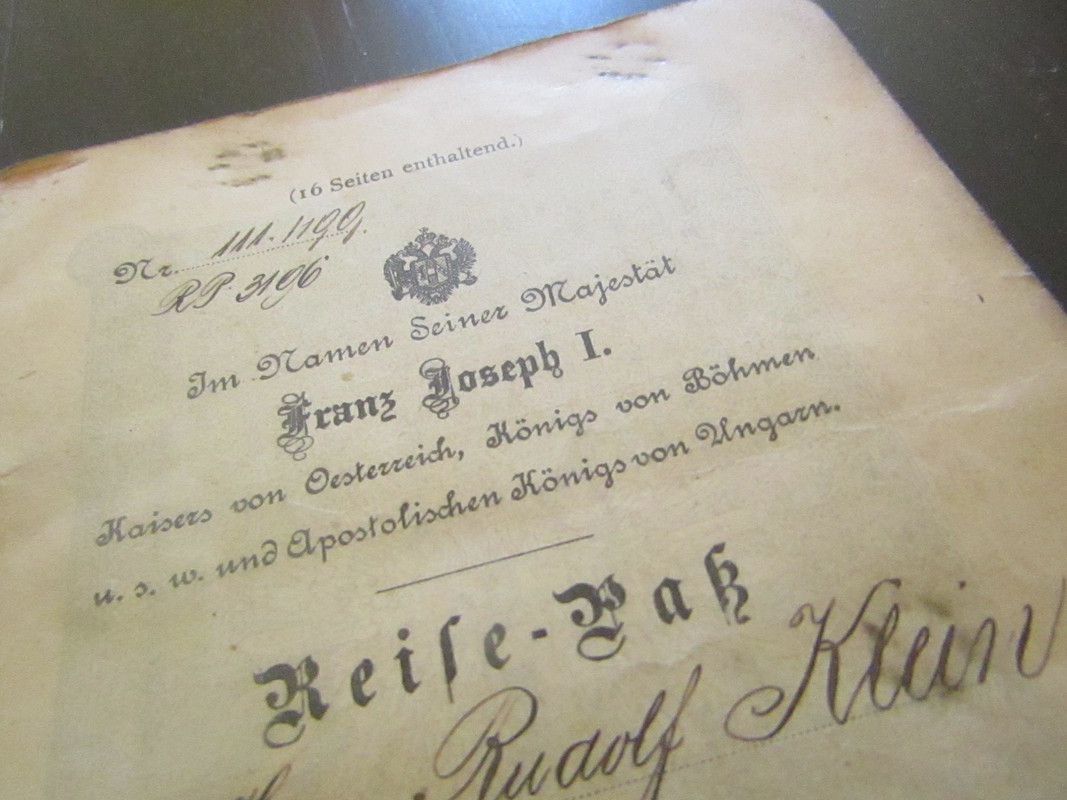 (16 Seiten enthaltend.)
Nr. 111.1199.
RP. 3196
Im Namen Seiner Majestät
Franz Joseph I.
Kaisers von Oesterreich, Königs von Böhmen
u. s. w. und Apostolischen Königs von Ungarn.
Reise-Paß
Rudolf Klein